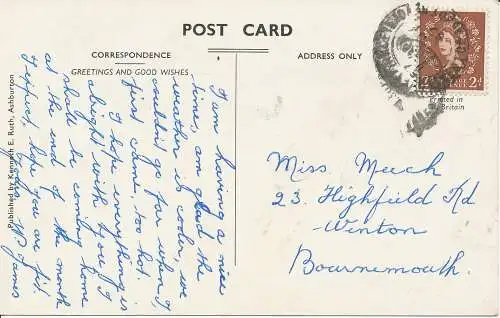 POST CARD
CORRESPONDENCE
ADDRESS ONLY
GREETINGS AND GOOD WISHES
I am having a nice
time, am glad the
weather is cooler, we
couldn't go far when I
first came, too hot.
I hope everything is
alright with you I
shall be coming home
at the end of the month
I expect, hope you are fit.
James
Miss. Meech
23. Highfield Rd
Winton
Bournemouth.
2d 2d
Printed in
Gt. Britain
Published by Kenneth E. Ruth, Ashburton